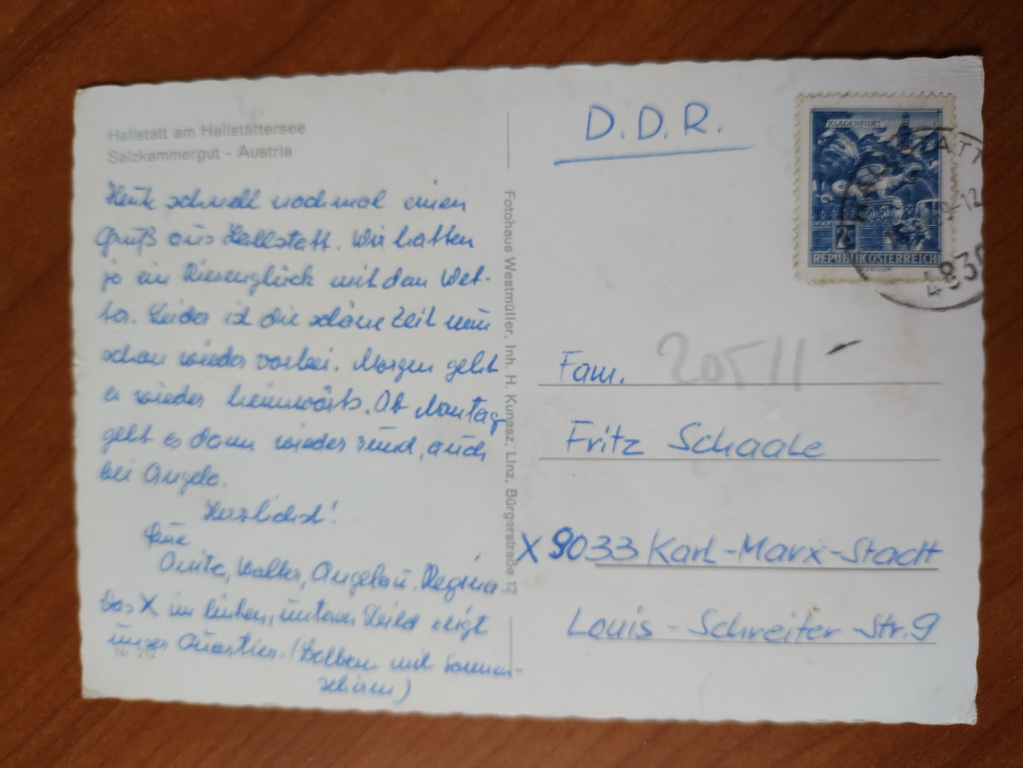 Hallstatt am Hallstättersee
Salzkammergut - Austria
Heute schnell nochmal einen
Gruß aus Hallstatt. Wir hatten
ja ein Riesenglück mit dem Wet-
ter. Leider ist die schöne Zeit nun
schon wieder vorbei. Morgen geht
es wieder heimwärts. Ab Montag
geht es dann wieder rund, auch
bei Angela.
Herzlichst!
Eure
Anita, Walter, Angela u. Regina.
Das X im linken, unteren Bild zeigt
unser Quartier. (Balkon mit Sonnen-
schirm)
Fotohaus Westmüller, Inh. H. Kunasz, Linz, Bürgerstraße 12
D.D.R.
KLAGENFURT
2
REPUBLIK ÖSTERREICH
HALLSTATT
4830
20511
Fam.
Fritz Schaale
X 9033 Karl-Marx-Stadt
Louis-Schreiter-Str. 9